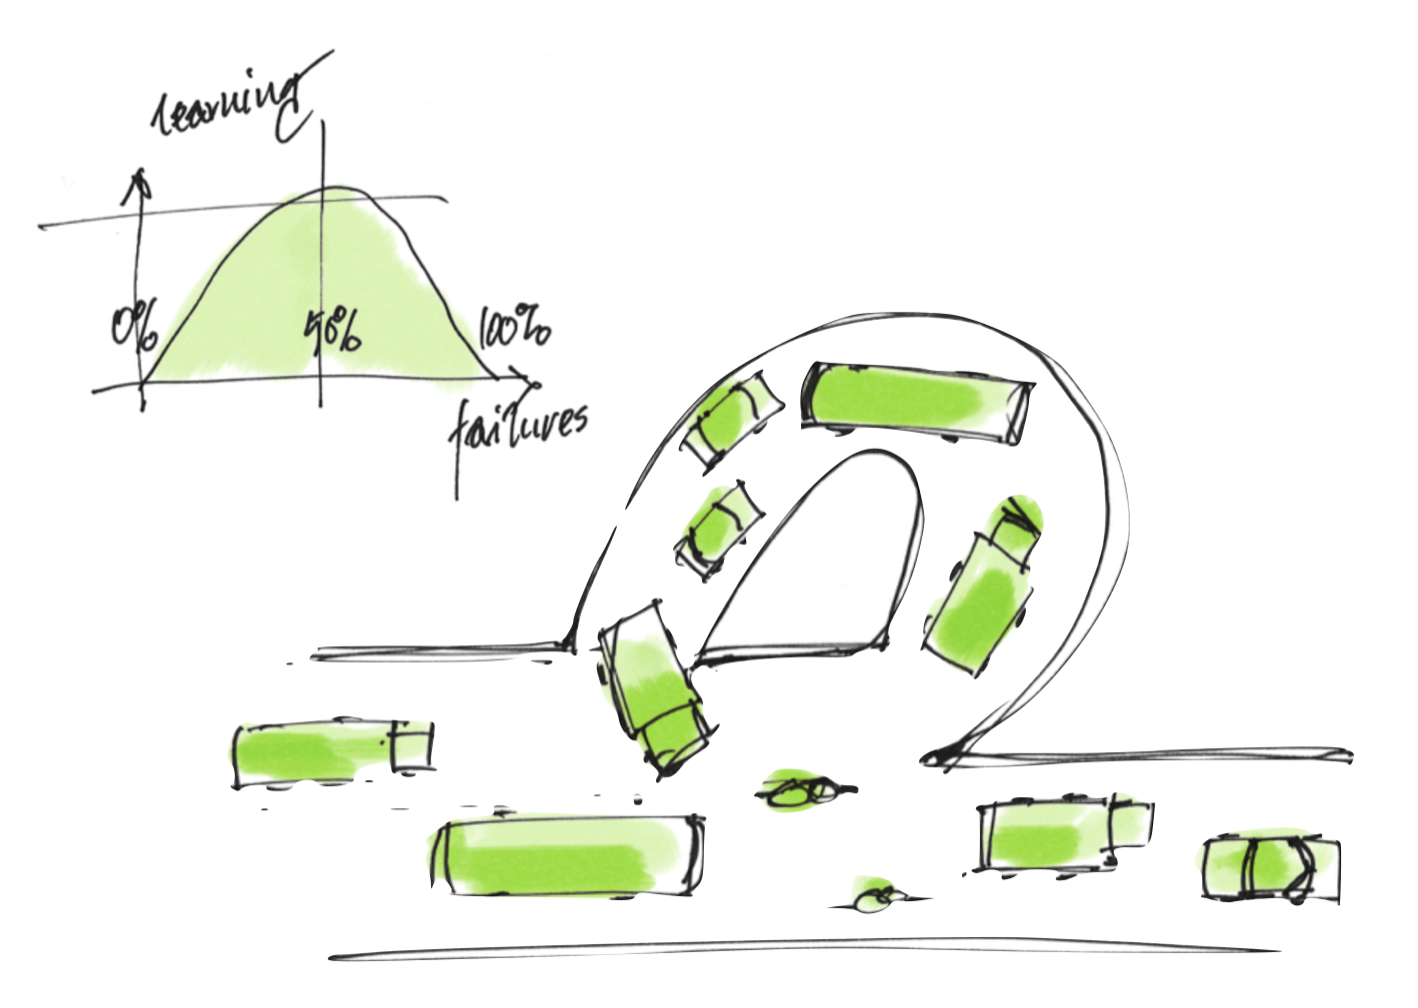 learning
0% 50% 100%
failures